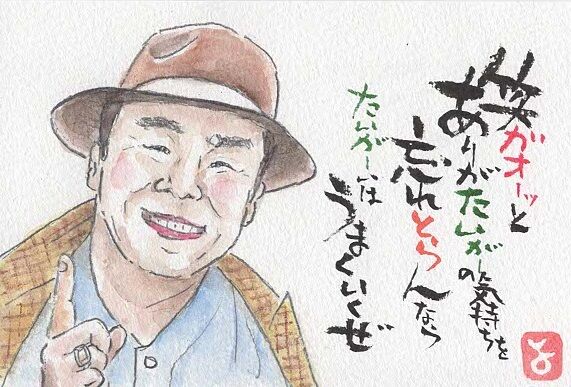 笑ガオーッと
ありがたいがーの気持ちを
忘れとらんなら
たいがーいは
うまくいくぜ